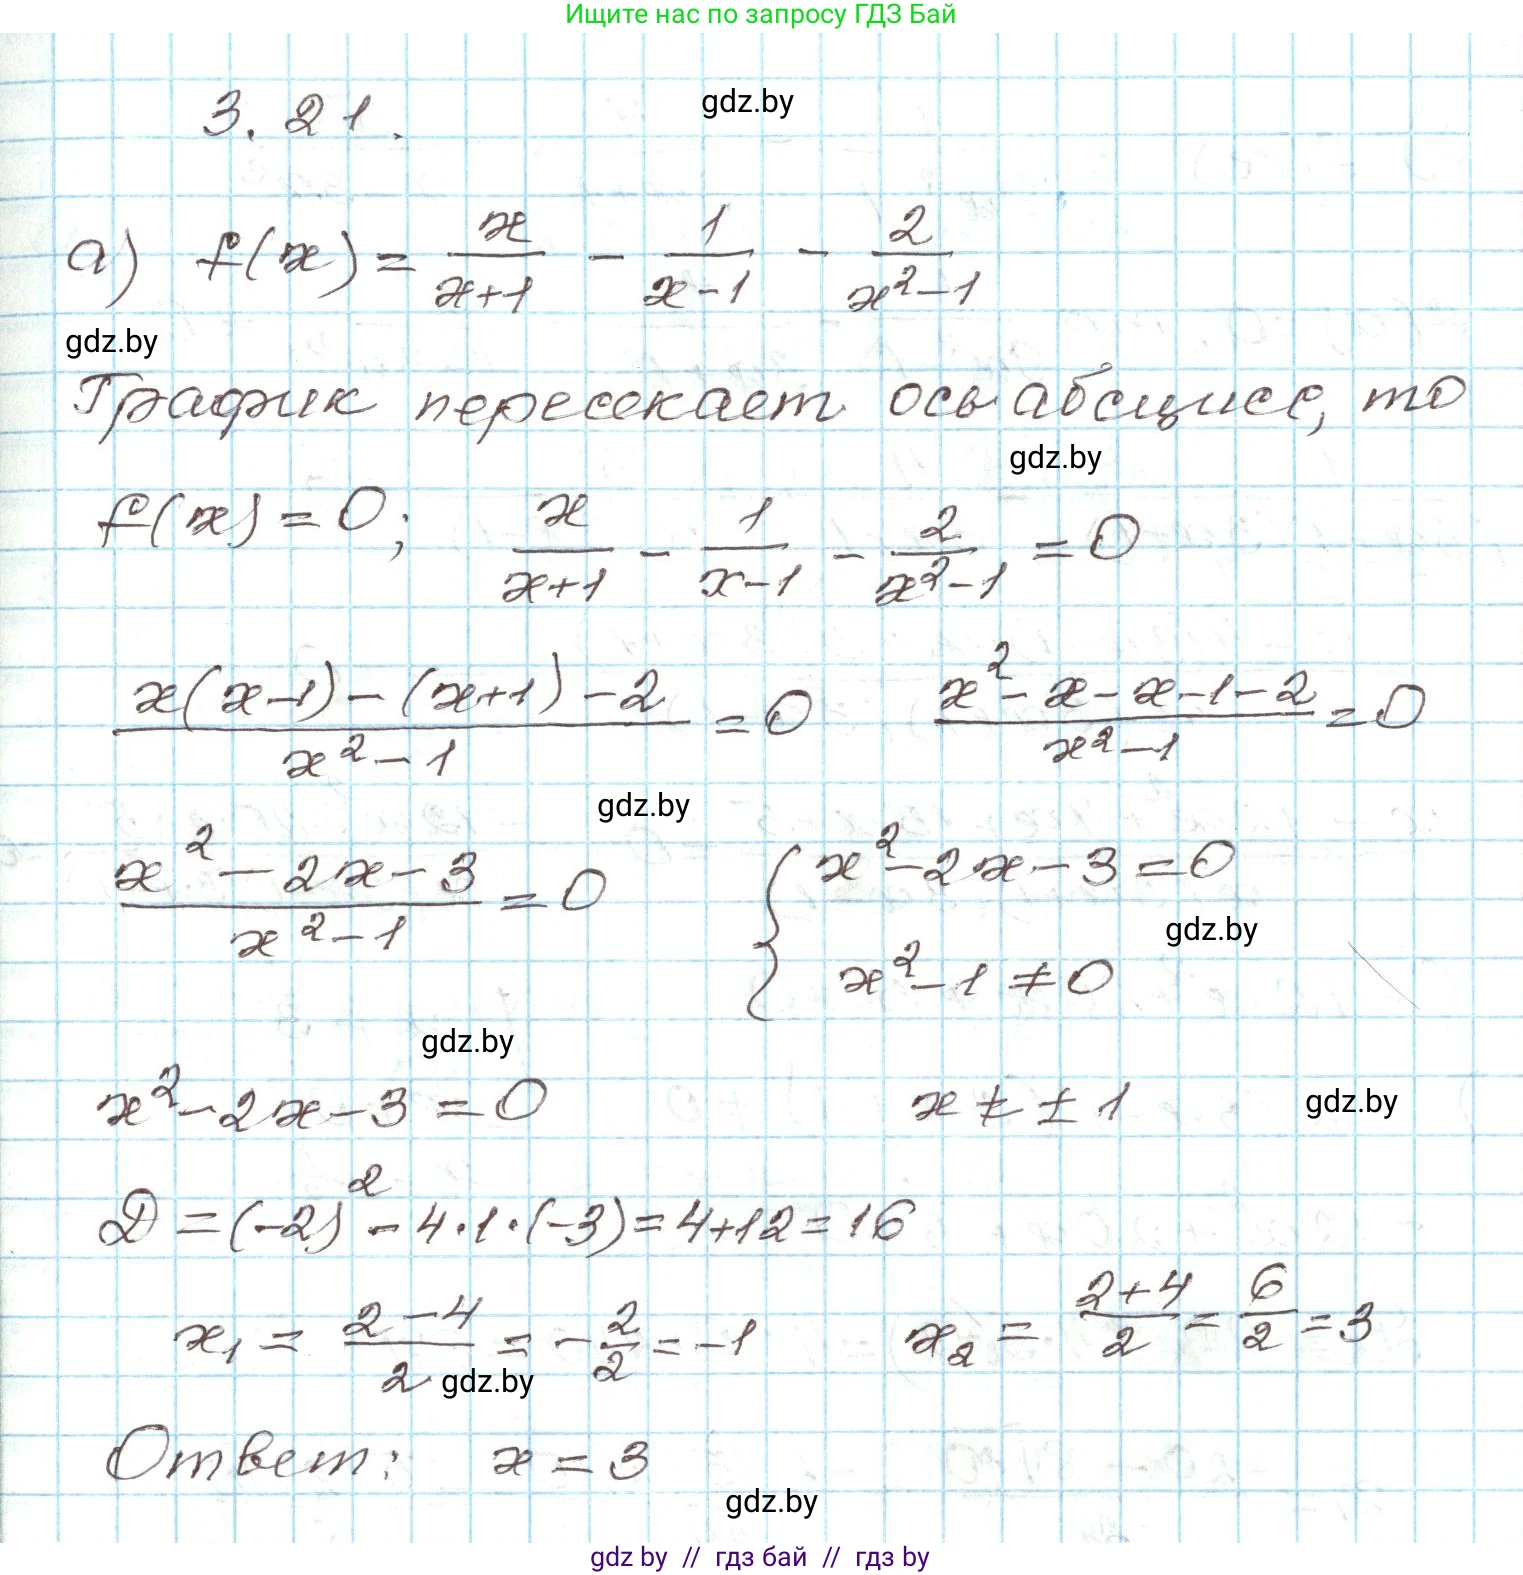 Ищите нас по запросу ГДЗ Бай
3.21. gdz.by
а) f(x) = x/(x+1) - 1/(x-1) - 2/(x²-1)
gdz.by
График пересекает ось абсцисс, то
gdz.by
f(x) = 0; x/(x+1) - 1/(x-1) - 2/(x²-1) = 0
(x(x-1) - (x+1) - 2)/(x²-1) = 0 (x² - x - x - 1 - 2)/(x²-1) = 0
gdz.by
(x² - 2x - 3)/(x²-1) = 0 { x² - 2x - 3 = 0
gdz.by
x² - 1 ≠ 0
gdz.by
x² - 2x - 3 = 0 x ≠ ± 1 gdz.by
D = (-2)² - 4·1·(-3) = 4+12 = 16
x₁ = (2-4)/2 = -2/2 = -1 x₂ = (2+4)/2 = 6/2 = 3
gdz.by
Ответ: x = 3
gdz.by
gdz by // гдз бай // гдз by